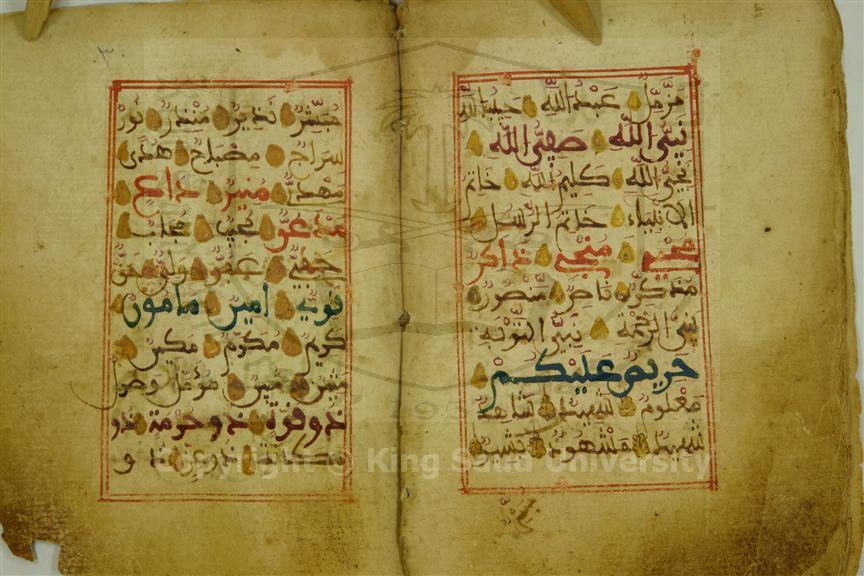 مزمل عبد الله حبيب الله
نبي الله صفي الله
نجي الله كليم الله خاتم
الانبياء خاتم الرسل
محيي منجي ذاكر
مذكر ناصر منصور
نبي الرحمة نبي التوبة
حريص عليكم
معلوم شهير شاهد
شهيد مشهود بشير
مبشر نذير منذر نور
سراج مصباح هدى
مهدي منير داع
مدعو مجيب مجاب
حفي عفو ولي حق
قوي امين مامون
كريم مكرم مكين
متين مبين مؤمل وصول
ذو قوة ذو حرمة ذو
مكانة ذو عز ذو
Copyright © King Saud University